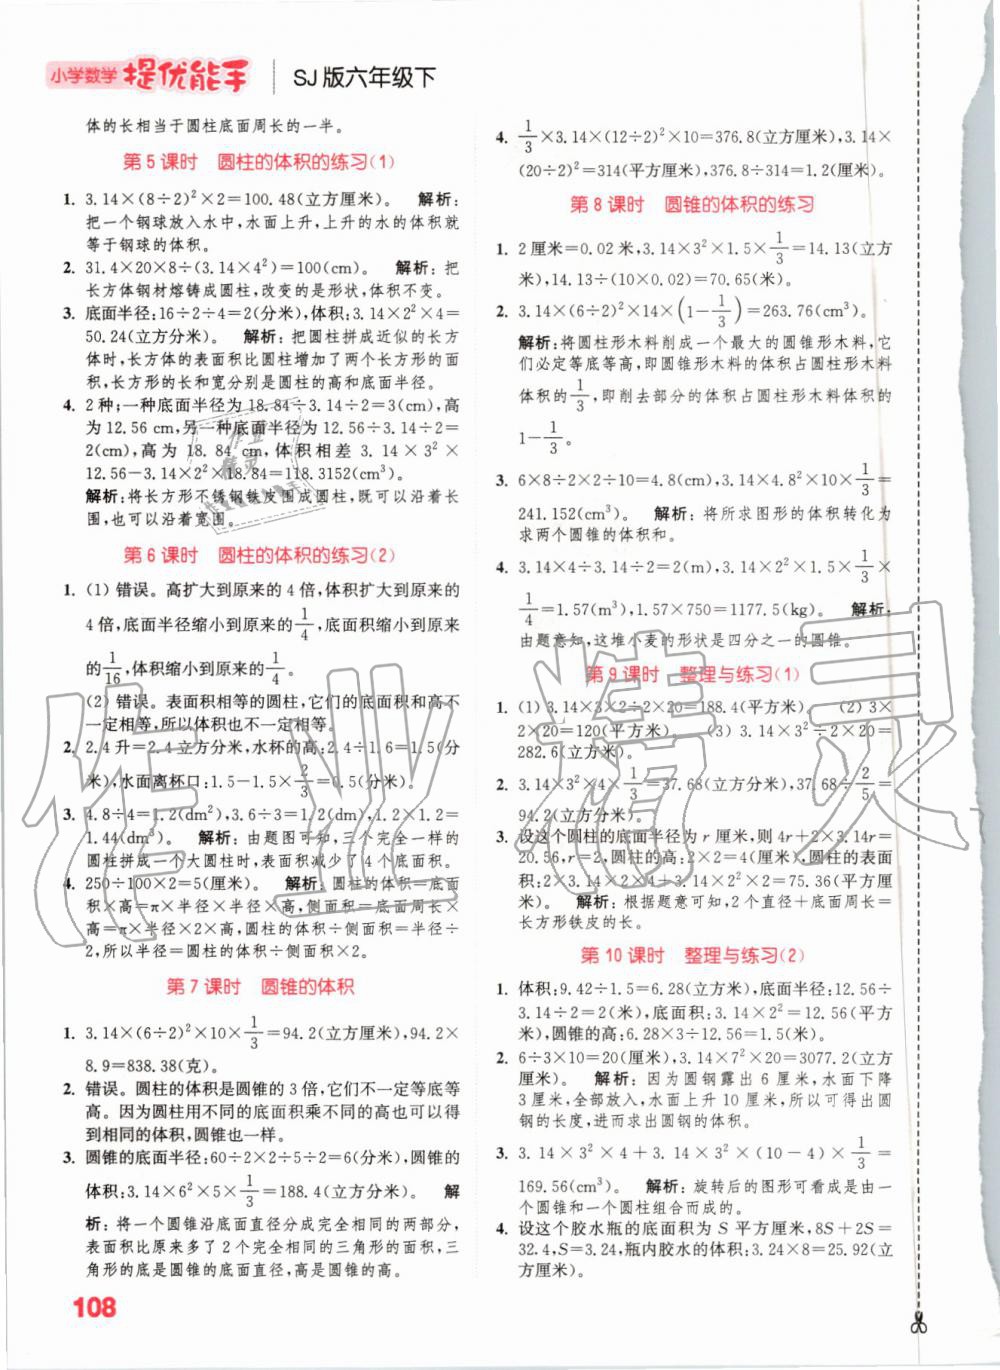 小学数学 提优能手 SJ版六年级下
体的长相当于圆柱底面周长的一半。
第5课时 圆柱的体积的练习(1)
1. 3.14×(8÷2)²×2=100.48(立方厘米)。 解析:
把一个钢球放入水中,水面上升,上升的水的体积就
等于钢球的体积。
2. 31.4×20×8÷(3.14×4²)=100(cm)。 解析:把
长方体钢材熔铸成圆柱,改变的是形状,体积不变。
3. 底面半径:16÷2÷4=2(分米),体积:3.14×2²×4=
50.24(立方分米)。 解析:把圆柱拼成近似的长方
体时,长方体的表面积比圆柱增加了两个长方形的面
积,长方形的长和宽分别是圆柱的高和底面半径。
4. 2种;一种底面半径为18.84÷3.14÷2=3(cm),高
为12.56 cm,另一种底面半径为12.56÷3.14÷2=
2(cm),高为18.84 cm,体积相差3.14×3²×
12.56-3.14×2²×18.84=118.3152(cm³)。
解析:将长方形不锈钢铁皮围成圆柱,既可以沿着长
围,也可以沿着宽围。
第6课时 圆柱的体积的练习(2)
1. (1) 错误。高扩大到原来的4倍,体积扩大到原来的
4倍,底面半径缩小到原来的1/4,底面积缩小到原来
的1/16,体积缩小到原来的1/4。
(2) 错误。表面积相等的圆柱,它们的底面积和高不
一定相等,所以体积也不一定相等。
2. 2.4升=2.4立方分米,水杯的高:2.4÷1.6=1.5(分
米),水面离杯口:1.5-1.5×2/3=0.5(分米)。
3. 4.8÷4=1.2(dm²),3.6÷3=1.2(dm),1.2×1.2=
1.44(dm³)。 解析:由题图可知,三个完全一样的
圆柱拼成一个大圆柱时,表面积减少了4个底面积。
4. 250÷100×2=5(厘米)。 解析:圆柱的体积=底面
积×高=π×半径×半径×高,侧面积=底面周长×
高=π×半径×2×高,圆柱的体积÷侧面积=半径÷
2,所以半径=圆柱的体积÷侧面积×2。
第7课时 圆锥的体积
1. 3.14×(6÷2)²×10×1/3=94.2(立方厘米),94.2×
8.9=838.38(克)。
2. 错误。圆柱的体积是圆锥的3倍,它们不一定等底等
高。因为圆柱用不同的底面积乘不同的高也可以得
到相同的体积,圆锥也一样。
3. 圆锥的底面半径:60÷2×2÷5÷2=6(分米),圆锥的
体积:3.14×6²×5×1/3=188.4(立方分米)。 解
析:将一个圆锥沿底面直径分成完全相同的两部分,
表面积比原来多了2个完全相同的三角形的面积,三
角形的底是圆锥的底面直径,高是圆锥的高。
108
4. 1/3×3.14×(12÷2)²×10=376.8(立方厘米),3.14×
(20÷2)²=314(平方厘米),376.8÷314=1.2(厘米)。
第8课时 圆锥的体积的练习
1. 2厘米=0.02米,3.14×3²×1.5×1/3=14.13(立方
米),14.13÷(10×0.02)=70.65(米)。
2. 3.14×(6÷2)²×14×(1-1/3)=263.76(cm³)。
解析:将圆柱形木料削成一个最大的圆锥形木料,它
们必定等底等高,即圆锥形木料的体积占圆柱形木料
体积的1/3,即削去部分的体积占圆柱形木料体积的
1-1/3。
3. 6×8÷2×2÷10=4.8(cm),3.14×4.8²×10×1/3=
241.152(cm³)。 解析:将所求图形的体积转化为
求两个圆锥的体积和。
4. 3.14×4÷3.14÷2=2(m),3.14×2²×1.5×1/3×
1/4=1.57(m³),1.57×750=1177.5(kg)。 解析:
由题意知,这堆小麦的形状是四分之一的圆锥。
第9课时 整理与练习(1)
1. (1) 3.14×3×2÷2×20=188.4(平方米)。 (2) 3×
2×20=120(平方米)。 (3) 3.14×3²÷2×20=
282.6(立方米)。
2. 3.14×3²×4×1/3=37.68(立方分米),37.68÷2/5=
94.2(立方分米)。
3. 设这个圆柱的底面半径为r厘米,则4r+2×3.14r=
20.56,r=2,圆柱的高:2×2=4(厘米),圆柱的表面
积:2×3.14×2×4+3.14×2²×2=75.36(平方厘
米)。 解析:根据题意可知,2个直径+底面周长=
长方形铁皮的长。
第10课时 整理与练习(2)
1. 体积:9.42÷1.5=6.28(立方米),底面半径:12.56÷
3.14÷2=2(米),底面积:3.14×2²=12.56(平方
米),圆锥的高:6.28×3÷12.56=1.5(米)。
2. 6÷3×10=20(厘米),3.14×7²×20=3077.2(立方
厘米)。 解析:因为圆钢露出6厘米,水面下降
3厘米,全部放入,水面上升10厘米,所以可得出圆
钢的长度,进而求出圆钢的体积。
3. 3.14×3²×4+3.14×3²×(10-4)×1/3=
169.56(cm³)。 解析:旋转后的图形可看成是由一
个圆锥和一个圆柱组合而成的。
4. 设这个胶水瓶的底面积为S平方厘米,8S+2S=
32.4,S=3.24,瓶内胶水的体积:3.24×8=25.92(立
方厘米)。
作业精灵